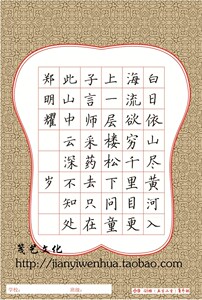 白日依山尽黄河入
海流欲穷千里目更
上一层楼松下问童
子言师采药去只在
此山中云深不知处
郑明耀 岁
笺艺文化
http://jianyiwenhua.taobao.com
学校:
班级: